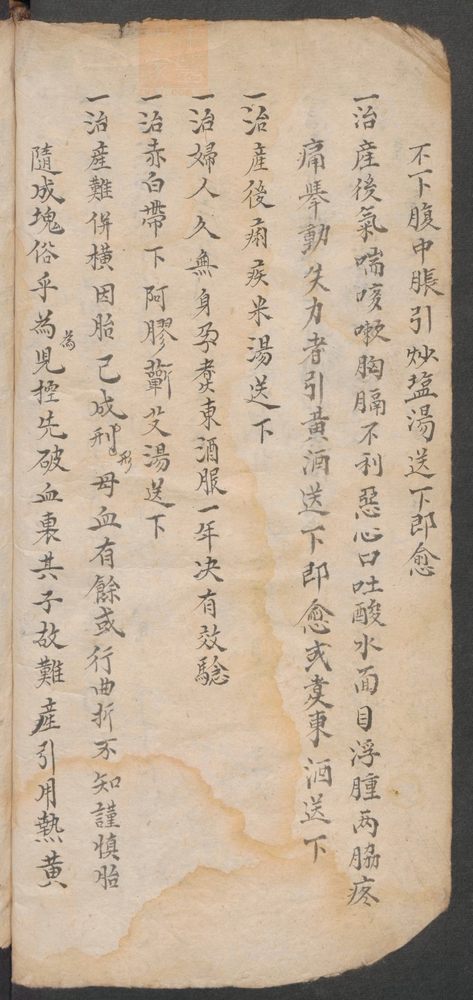 不下腹中脹引炒塩湯送下即愈
一治産後氣喘咳嗽胸膈不利惡心口吐酸水面目浮腫两脇疼
痛舉動失力者引黄酒送下即愈或煑東酒送下
一治産後痢疾米湯送下
一治婦人久無身孕煑東酒服一年决有效騐
一治赤白帶下阿膠蘄艾湯送下
一治産難併橫因胎已成刑形母血有餘或行曲折不知謹慎胎
隨成塊俗乎為為児控先破血裹其子故難産引用熱黄